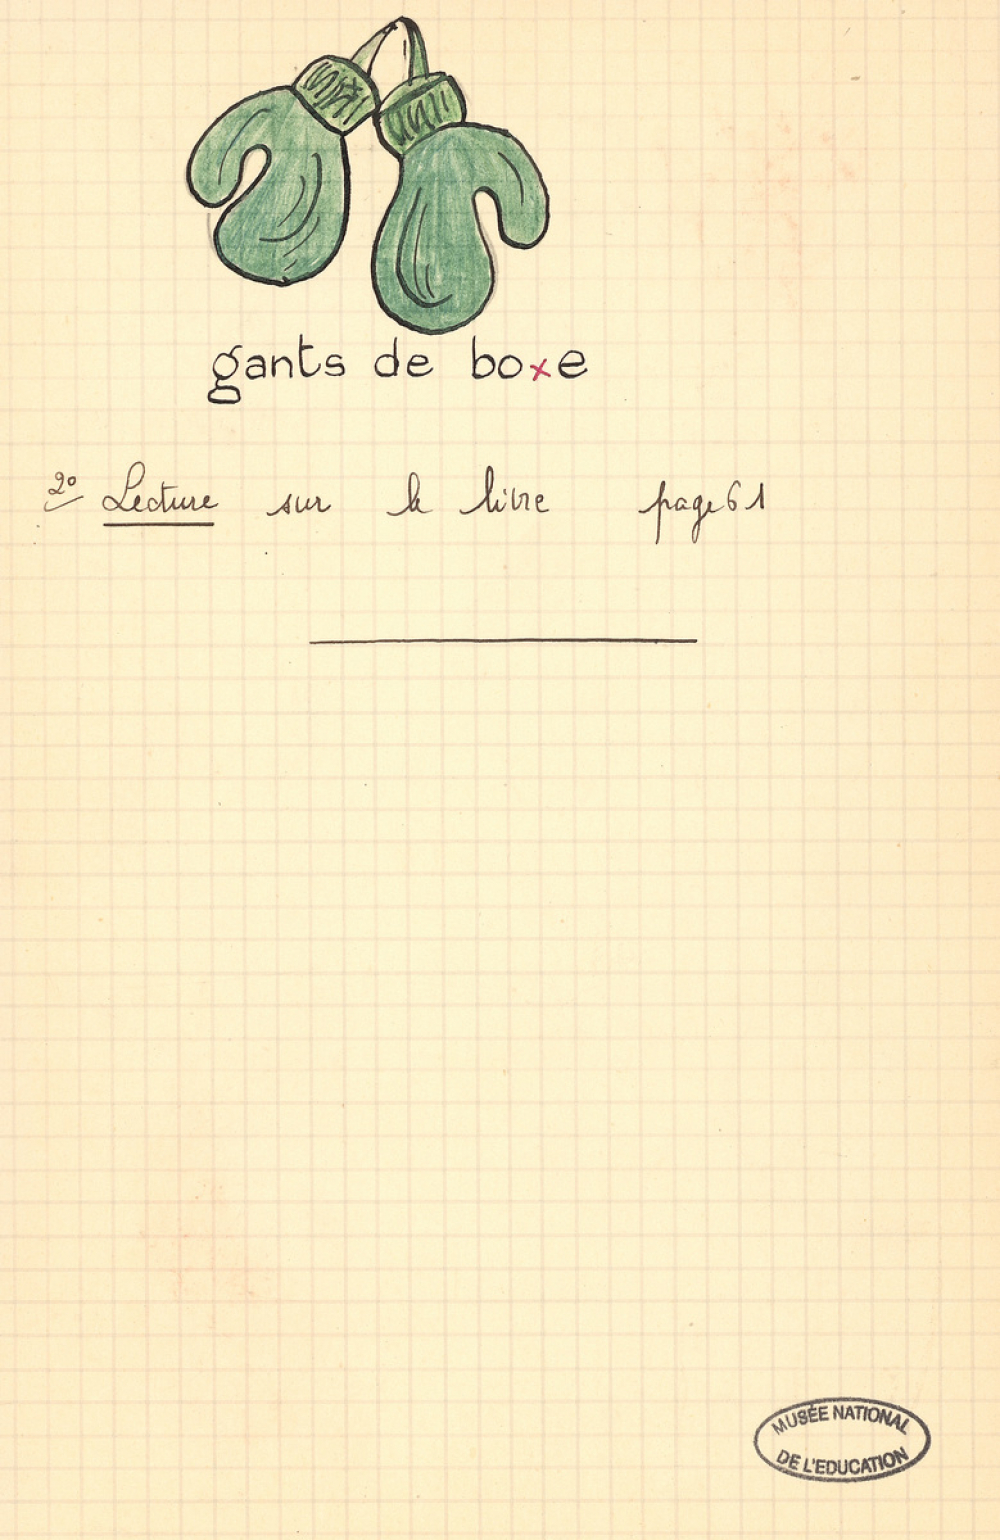 gants de boxe
2° Lecture sur le livre page 61
MUSÉE NATIONAL
DE L'EDUCATION